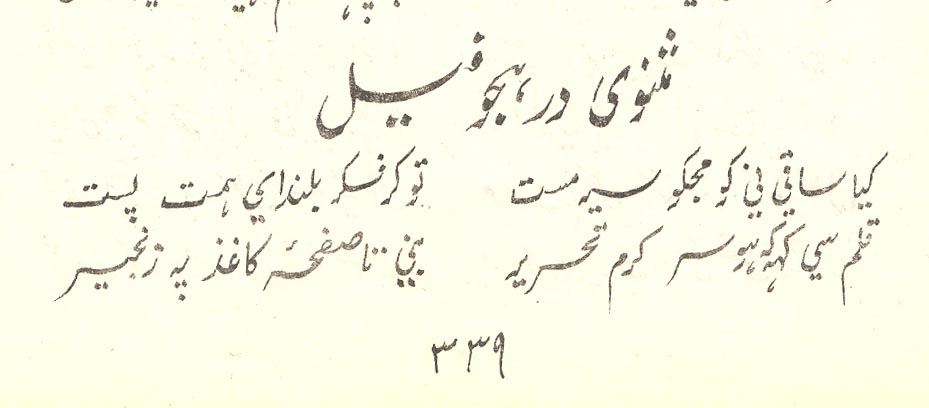 مثنوی در ہجو فیل
کیا ساقی نی کو مجکو سیہ مست تو کر فکر بلند اي ہمت پست
قلم سي کہہ کہ ہو سر کرم تحریر بني تا صفحۂ کاغذ پہ زنجیر
۳۳۹